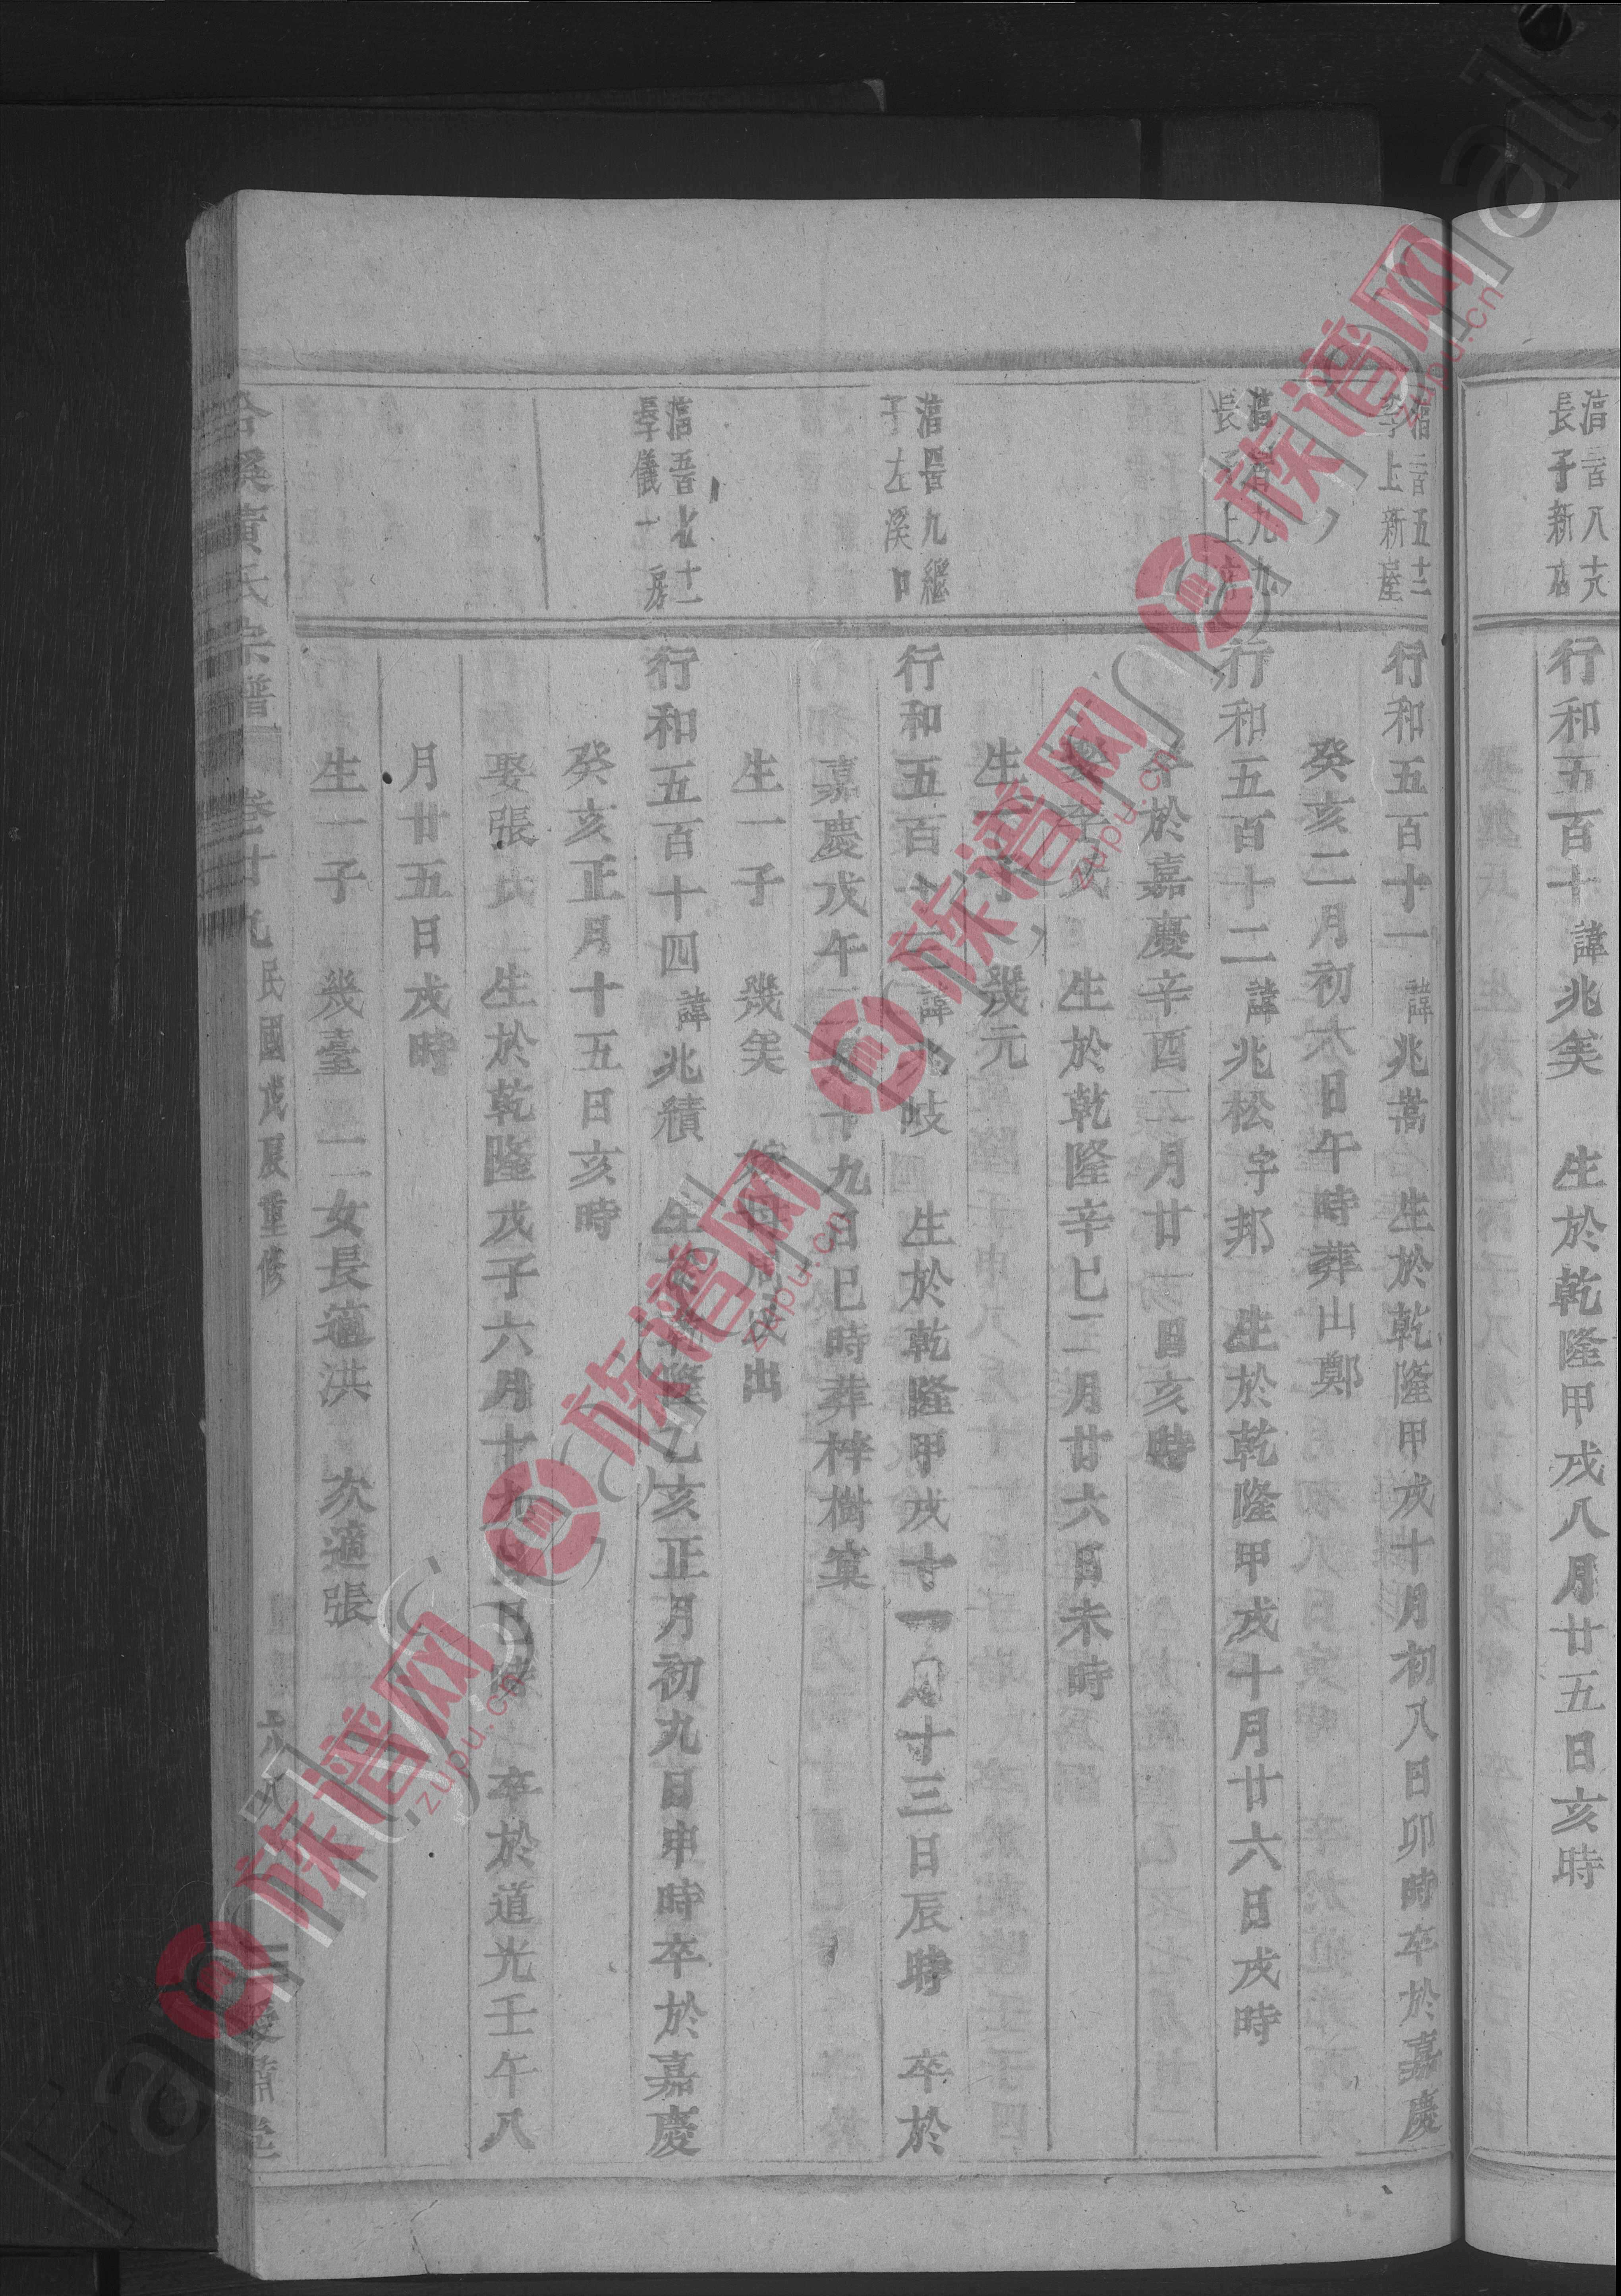 長子新店
行和五百十 諱兆美 生於乾隆甲戌八月廿五日亥時
季子上新屋
行和五百十一 諱兆嵩 生於乾隆甲戌十月初八日卯時卒於嘉慶
癸亥二月初六日午時葬山鄭
行和五百十二 諱兆松 字邦 生於乾隆甲戌十月廿六日戌時
卒於嘉慶辛酉二月廿 日亥時
娶李氏 生於乾隆辛巳二月廿六日未時
生一子 幾元
九繼
子左溪口
行和五百十三 諱兆岐 生於乾隆甲戌十一月十三日辰時 卒於
嘉慶戊午 十九日巳時葬梓樹窠
生一子 幾美 出
長季儀一房
行和五百十四 諱兆積 生於乾隆乙亥正月初九日申時卒於嘉慶
癸亥正月十五日亥時
娶張氏 生於乾隆戊子六月十九日巳時 卒於道光壬午八
月廿五日戌時
生一子 幾臺 二女長適洪 次適張
黃氏宗譜 卷廿九 民國戊辰重修 六八
族谱网
zupu.cn
族谱网
zupu.cn
族谱网
zupu.cn
族谱网
zupu.cn
族谱网